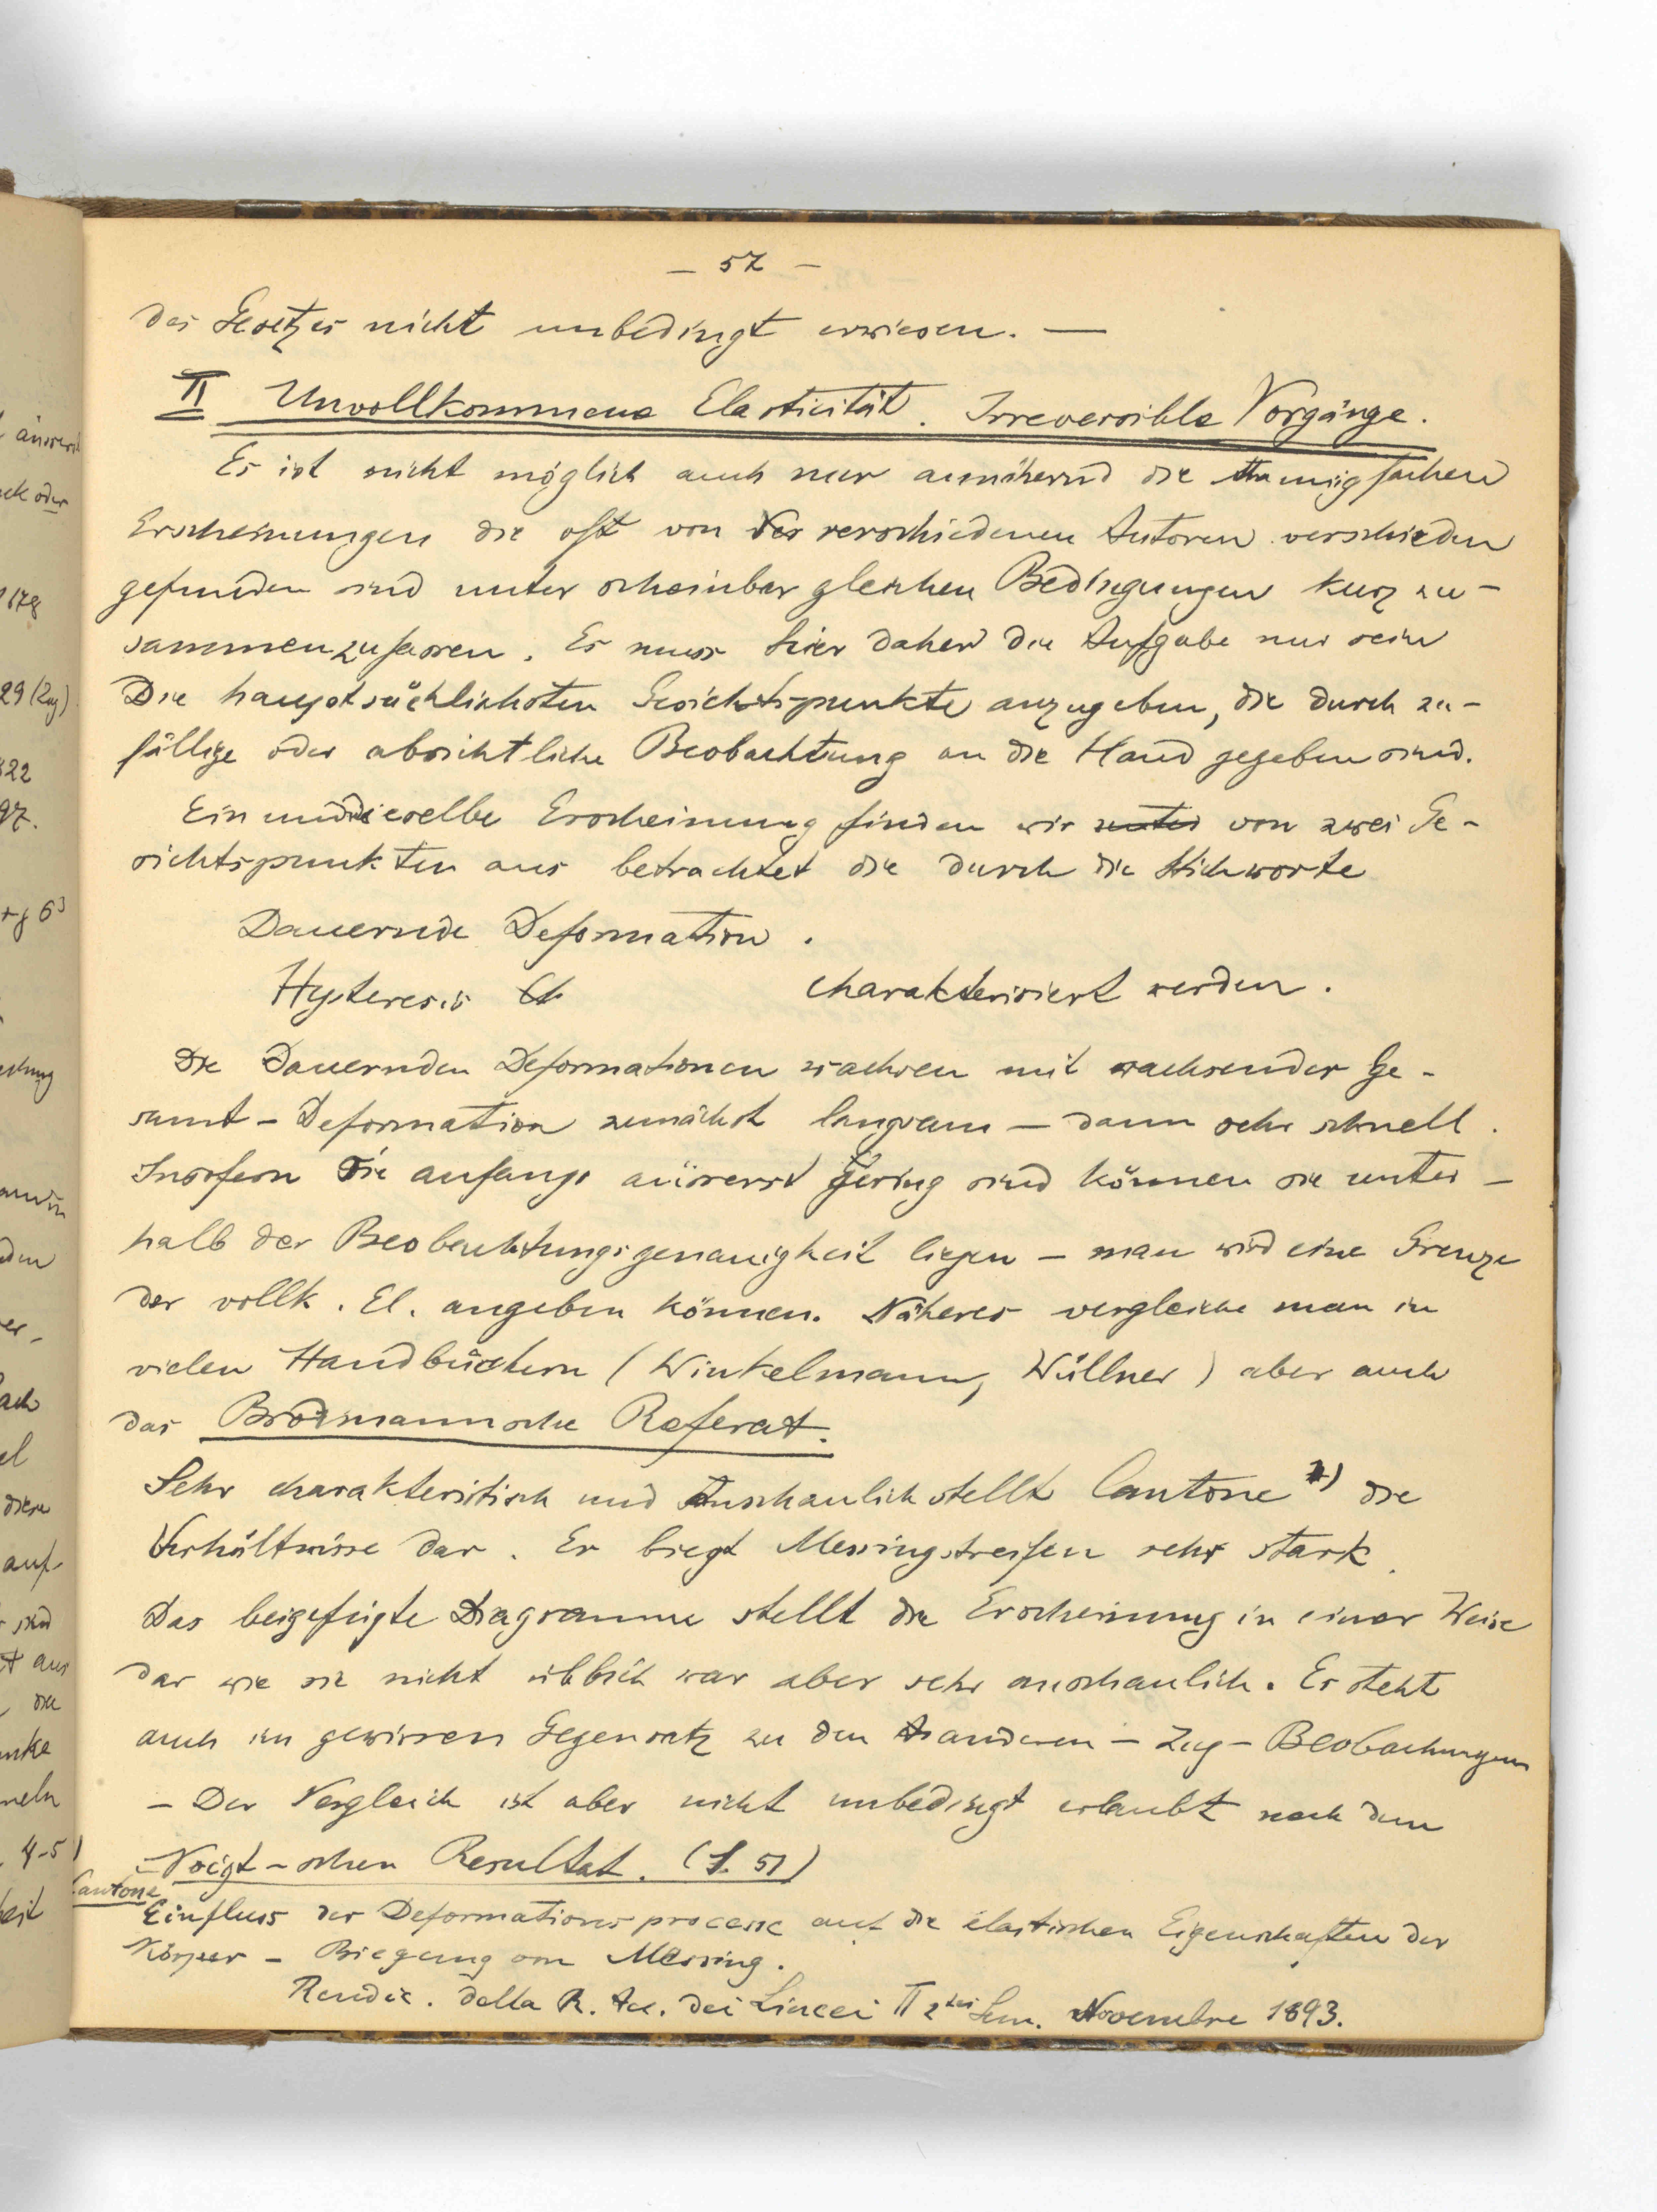 — 52 —
des Gesetzes nicht unbedingt erwiesen. —
II Unvollkommene Elasticität. Irreversible Vorgänge.
Es ist nicht möglich auch nur annähernd die mannigfachen
Erscheinungen die oft von verschiedenen Autoren verschieden
gefunden sind unter scheinbar gleichen Bedingungen kurz zu-
sammenzufassen. Es muss hier daher die Aufgabe nur sein
Die hauptsächlichsten Gesichtspunkte anzugeben, die durch zu-
fällige oder absichtliche Beobachtung an die Hand gegeben sind.
Ein und dieselbe Erscheinung finden wir unter von zwei Ge-
sichtspunkten aus betrachtet die durch die Stichworte
Dauernde Deformation.
Hysteresis charakterisiert werden.
Die Dauernden Deformationen wachsen mit wachsender Ge-
samt-Deformation zunächst langsam — dann sehr schnell.
Insofern sie anfangs äusserst gering sind können sie unter-
halb der Beobachtungsgenauigkeit liegen — man wird eine Grenze
der vollk. El. angeben können. Näheres vergleiche man in
vielen Handbüchern (Winkelmann, Wüllner) aber auch
das Brodmannsche Referat.
Sehr charakteristisch und anschaulich stellt Cantone 1) die
Verhältnisse dar. Er biegt Messingstreifen sehr stark.
Das beigefügte Diagramm stellt die Erscheinung in einer Weise
dar wie sie nicht üblich war aber sehr anschaulich. Es steht
auch im gewissen Gegensatz zu den anderen — Zug — Beobachungen
— Der Vergleich ist aber nicht unbedingt erlaubt nach dem
Voigt-schen Resultat. (S. 51)
Cantone
Einfluss der Deformationsprocesse auf die elastischen Eigenschaften der
Körper — Biegung von Messing.
Rendic. della R. Ac. dei Lincei II 2 Sem. Novembre 1893.